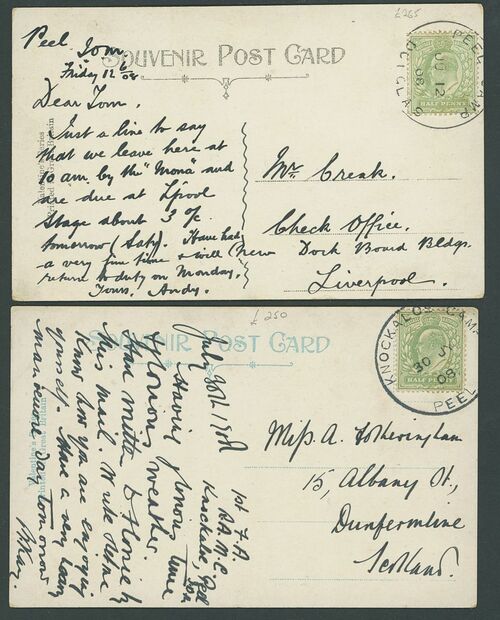 £265
Peel, Iom,
Friday 12 6/08
SOUVENIR POST CARD
PEEL CAMP
JU 12
08
DOUGLAS
HALF PENNY
Dear Tom,
Just a line to say
that we leave here at
10 am. by the "Mona" and
are due at L'pool
Stage about 3 o/c
tomorrow (Saty). Have had
a very fine time & will
return to duty on Monday.
Yours, Andy.
Mr. Creak.
Check Office.
New Dock Board Bldgs.
Liverpool.
£250
SOUVENIR POST CARD
KNOCKALOE CAMP
30 JY
08
PEEL
HALF PENNY
1st F.A.
R.A.M.C
Knockaloe, Peel
Iom
July 30th 1908
Having glorious time
glorious weather.
Have written to Florrie by
this mail. Write &
know how you are enjoying
yourself. Have a very heavy
manoeuvre day tomorrow
Miss A. Fotheringham
15, Albany St.,
Dunfermline
Scotland.